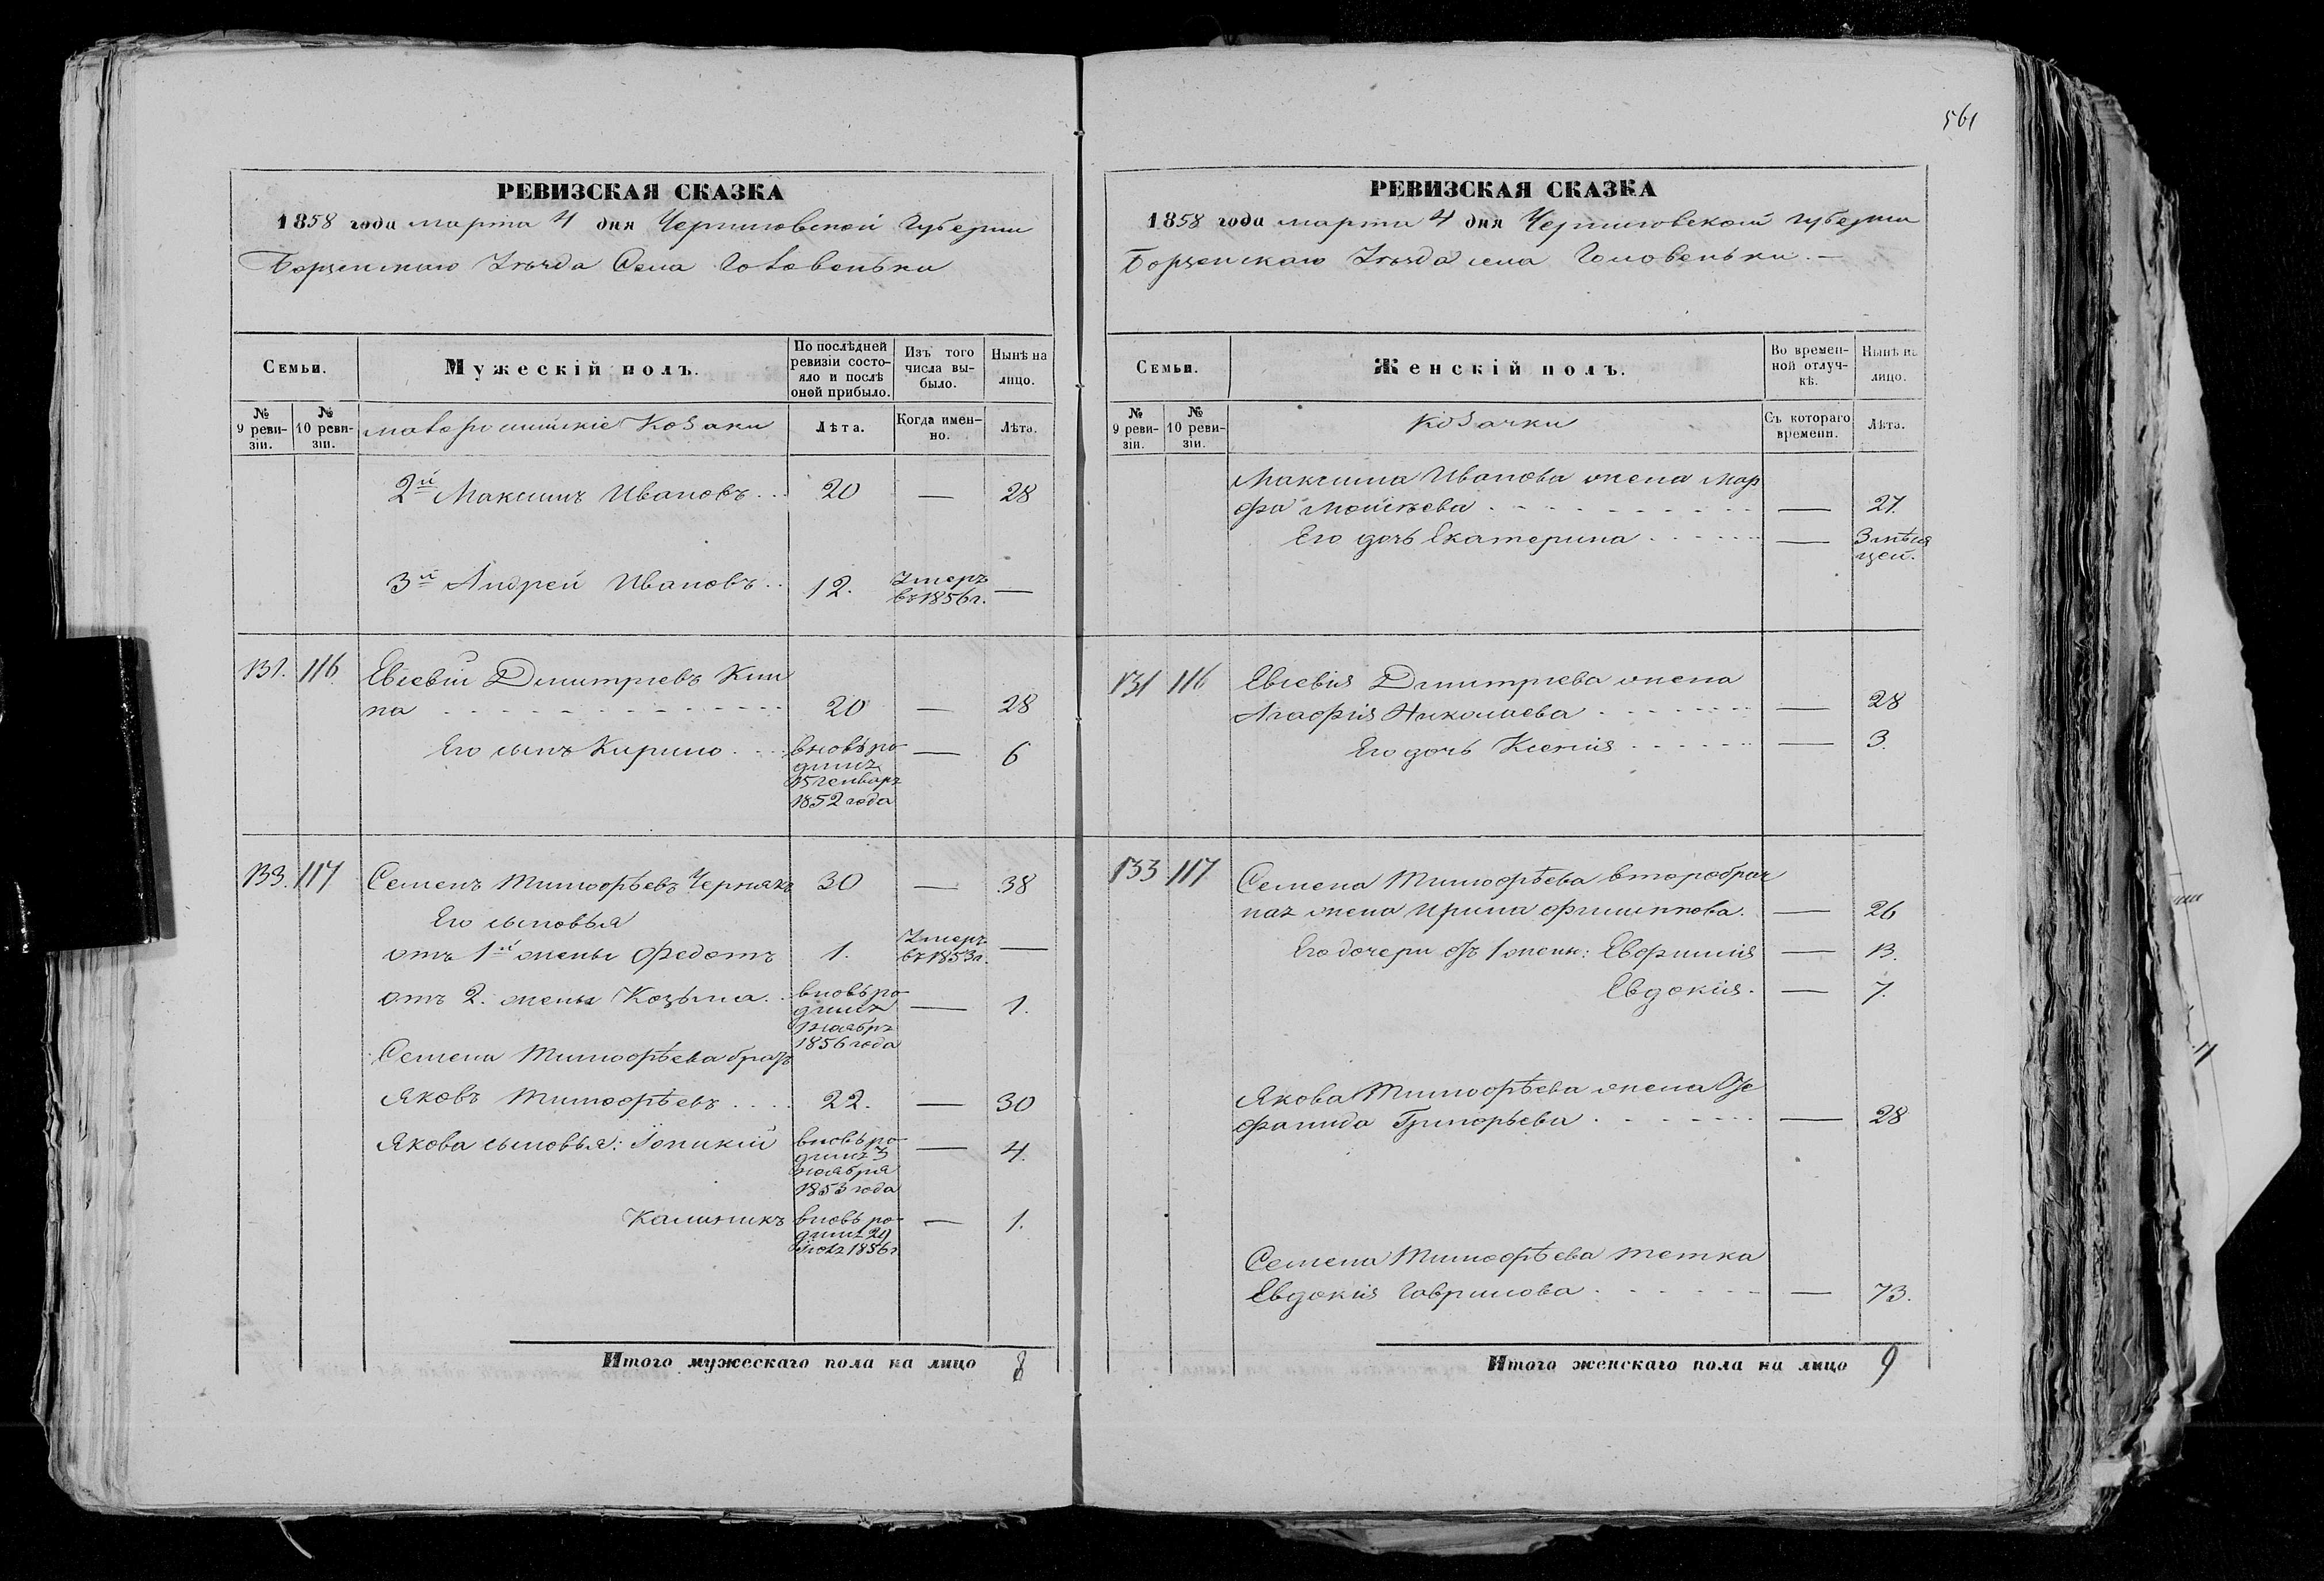 561
РЕВИЗСКАЯ СКАЗКА
1858 года марта 4 дня Черниговской Губернии
Борзенскаго Уезда Села Головеньки
Семьи.
Мужескій полъ.
По послѣдней ревизіи состояло и послѣ оной прибыло.
Изъ того числа выбыло.
Нынѣ на лицо.
№ 9 ревизіи.
№ 10 ревизіи.
малороссійскіе Козаки
Лѣта.
Когда именно.
Лѣта.
2й Максимъ Ивановъ 20 — 28
3й Андрей Ивановъ 12. Умеръ въ 1856 г. —
131. 116 Евсевій Дмитріевъ
на 20 — 28
Его сынъ Кирило вновь ро-
дился
15 генваря
1852 года — 6
133. 117 Семенъ Тимофѣевъ Чернякъ 30 — 38
Его сыновья
отъ 1й жены Федотъ 1. Умеръ въ 1853 г. —
отъ 2. жены Козьма вновь ро-
дился
ноября
1856 года — 1.
Семена Тимофѣева братъ
Яковъ Тимофѣевъ 22. — 30
Якова сыновья: Іоникій вновь ро-
дился 3
ноября
1853 года — 4.
Калиникъ вновь ро-
дился 29
1856 г. — 1.
Итого мужескаго пола на лицо 8
РЕВИЗСКАЯ СКАЗКА
1858 года марта 4 дня Черниговской Губернии
Борзенскаго Уезда села Головеньки. —
Семьи.
Женскій полъ.
Во временной отлучкѣ.
Нынѣ на лицо.
№ 9 ревизіи.
№ 10 ревизіи.
Козачки
Съ котораго времени.
Лѣта.
Максима Иванова жена Мар
фа Мойсѣева — 27.
Его дочь Екатерина — 3 мѣся
цей.
131 116 Евсевія Дмитріева жена
Агафія Николаева — 28
Его дочь Ксенія — 3.
133 117 Семена Тимофѣева второбрач
ная жена Ирина Филиппова. — 26
Его дочери отъ 1 жены: Евфимія — 13.
Евдокія. — 7.
Якова Тимофѣева жена
Григорьева — 28
Семена Тимофѣева тетка
Евдокія Гаврилова — 73.
Итого женскаго пола на лицо 9